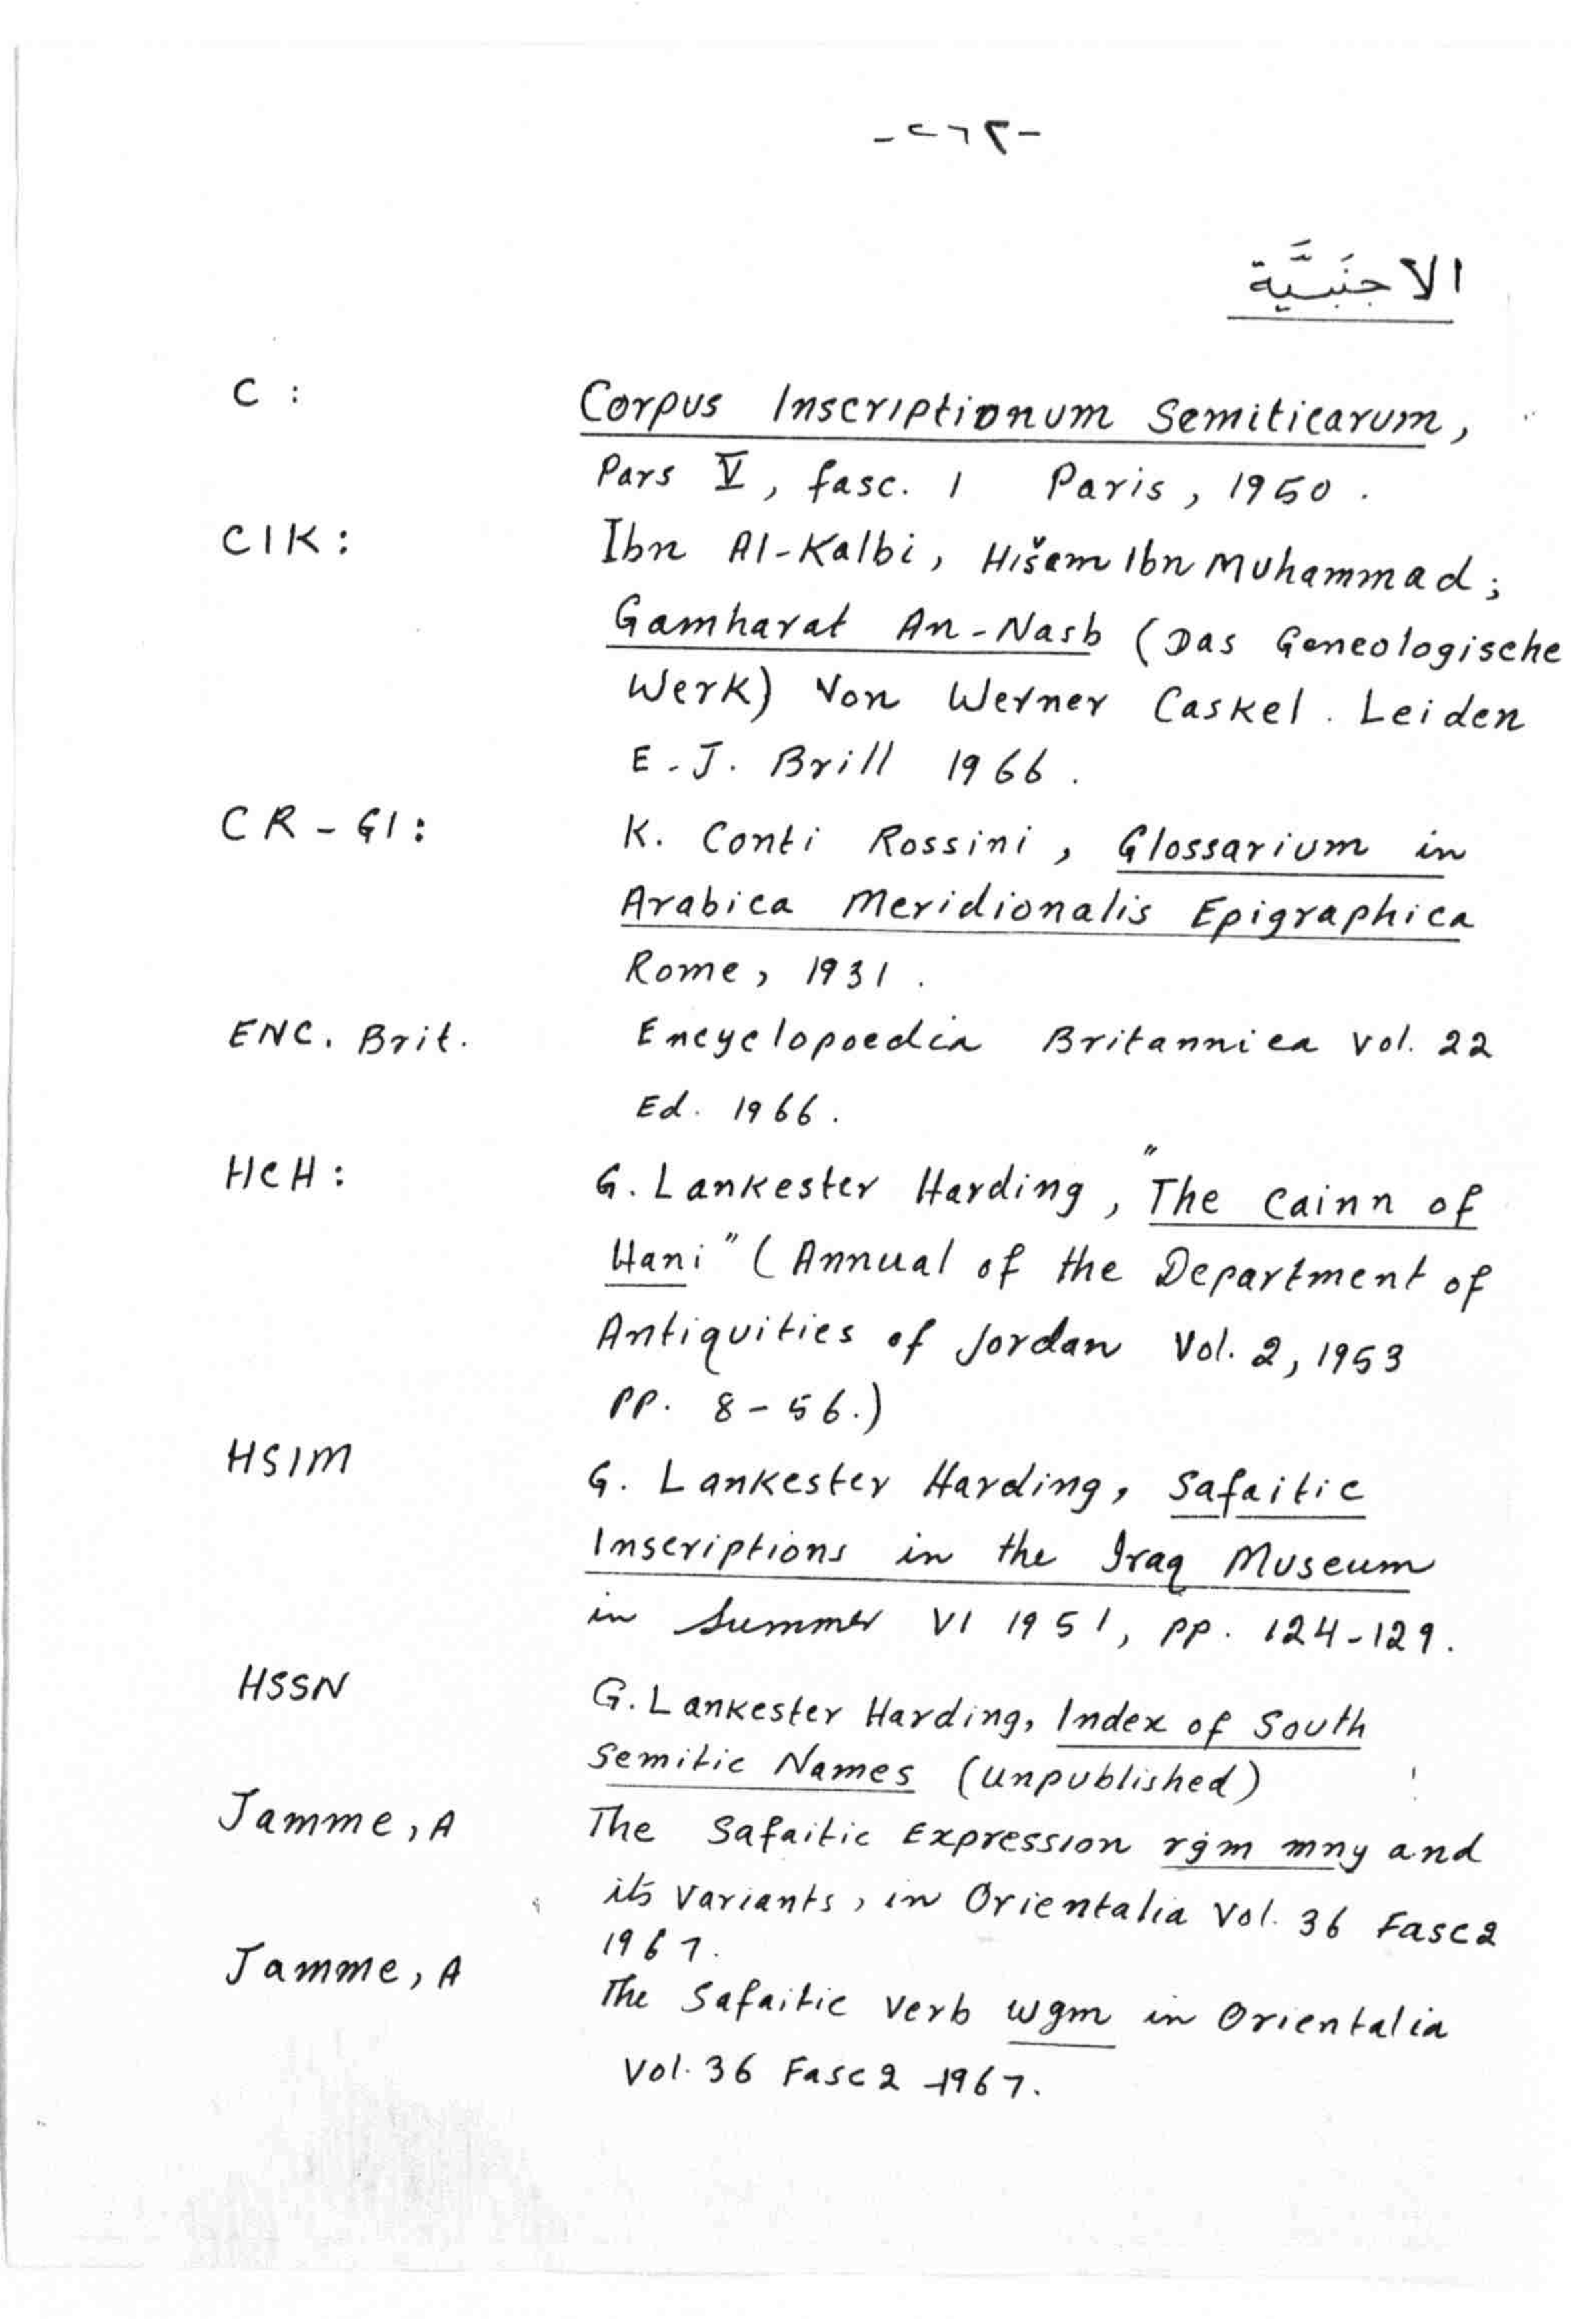 -٢٦٢-
الاجنَبيَّة
C : Corpus Inscriptionum Semiticarum,
Pars V, fasc. 1 Paris, 1950.
CIK: Ibn Al-Kalbi, Hišam Ibn Muhammad;
Gamharat An-Nasb (Das Geneologische
Werk) Von Werner Caskel. Leiden
E.J. Brill 1966.
CR-GI: K. Conti Rossini, Glossarium in
Arabica Meridionalis Epigraphica
Rome, 1931.
ENC. Brit. Encyclopoedia Britannica Vol. 22
Ed. 1966.
HCH: G. Lankester Harding, "The Cainn of
Hani" (Annual of the Department of
Antiquities of Jordan Vol. 2, 1953
PP. 8-56.)
HSIM G. Lankester Harding, Safaitic
Inscriptions in the Iraq Museum
in Summer VI 1951, pp. 124-129.
HSSN G. Lankester Harding, Index of South
Semitic Names (unpublished)
Jamme, A The Safaitic Expression rġm mny and
its variants, in Orientalia Vol. 36 Fasc 2
1967.
Jamme, A The Safaitic verb wgm in Orientalia
Vol. 36 Fasc 2 -1967.